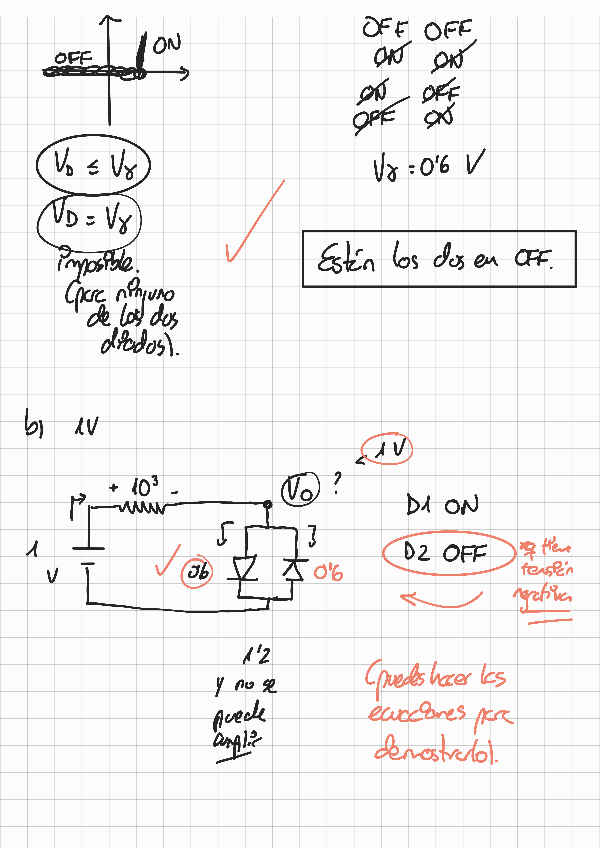 OFF
ON
V_D ≤ Vγ
V_D = Vγ
imposible.
(para ninguno
de los dos
diodos).
OFF OFF
ON ON
ON OFF
OFF ON
Vγ = 0'6 V
Están los dos en OFF.
b) 1V
+ 10³ -
V_O ?
1V
1
V
0'6
0'6
D1 ON
D2 OFF
tiene
tensión
negativa
1'2
y no se
puede
(puedes hacer las
ecuaciones para
demostrarlo).